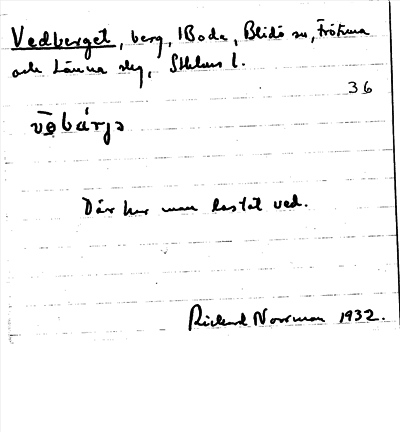 Vedberget, berg, Boda, Blidö sn, Frötuna
och Länna slg, Sthlms l.
36
vēbárjə
Där har man lastat ved.
Rickard Norrman 1932.